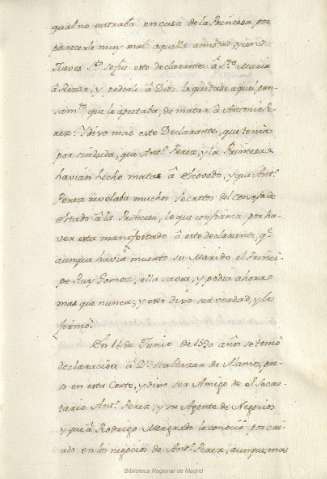 qual no entraba en casa de la Princesa por
parecerle muy mal aquella amistad, y con
se fue este declarante â Sta. Maria
â Rezar, y pedirle â Dios le quitase aquel pen
samto. que le apretaba, de matar â Antonio Pe
rez: Y dixo mas este Declarante, que tenia
por sin duda, que Anto. Perez, y la Princesa
havian hecho matar â Escovedo, y que Anto.
Perez revelaba muchos secretos del consejo de
estado â la Princesa, lo que confirma por ha
ver esta manifestado â este declarante, qe.
aunque havia muerto su Marido el Princi
pe Ruy Gomez, ella savia, y podia ahora
mas que nunca; y esto dijo ser verdad, y lo
firmó.
En 14 de Junio de 1590 años se tomó
declaracion â Dn. Baltasar de Alamos, pre
so en esta Corte, y dixo ser Amigo de el Secre
tario Anto. Perez, y su Agente de Negocios
y que â Rodrigo Morgado le conoció por cri
ado en los negocios de Anto. Perez, aunque mas
Biblioteca Regional de Madrid